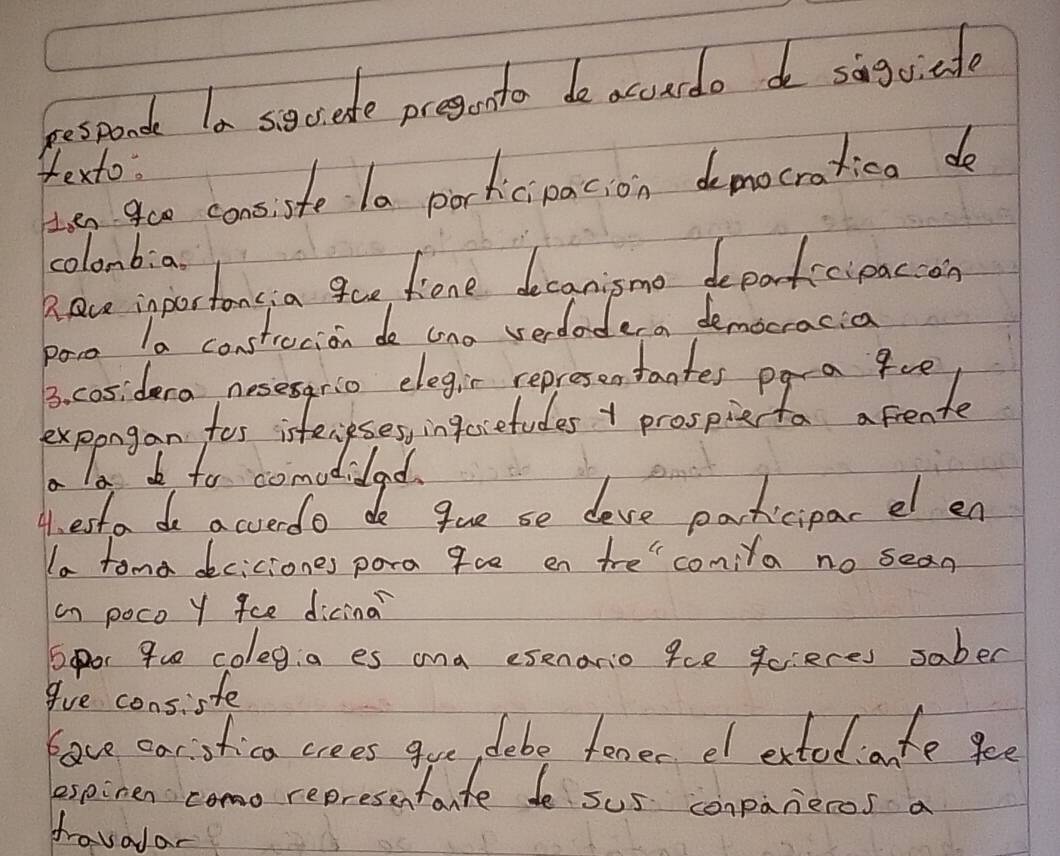 responde la siguiente pregunta de acuerdo de siguiente
texto:
1.en que consiste la participación democratica de
colombia.
2 Que inportancia que tiene decanismo departicipacción
para la construción de una verdadera democracia
3.cosidera nesesario elegir representantes para que
expongan tus isterpses, inquietudes y prospierta a frente
a la de tu comudidad.
4.esta de acuerdo de que se deve participar el en
la toma deciciones para que en tre "comiya no sean
un poco y que dicina"
5 por que colegia es una esenario que quieres saber
que consiste
6 que caristica crees que debe tener el extudiante que
espiren como representante de sus conpañeros a